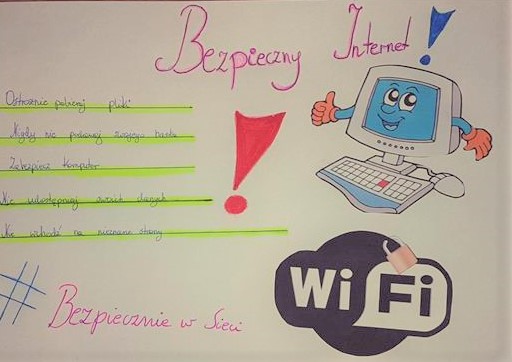 Bezpieczny Internet!
Ostrożnie pobieraj pliki
Nigdy nie podawaj swojego hasła
Zabezpiecz komputer
Nie udostępniaj swoich danych
Nie wchodź na nieznane strony
!
Wi Fi
# Bezpiecznie w Sieci